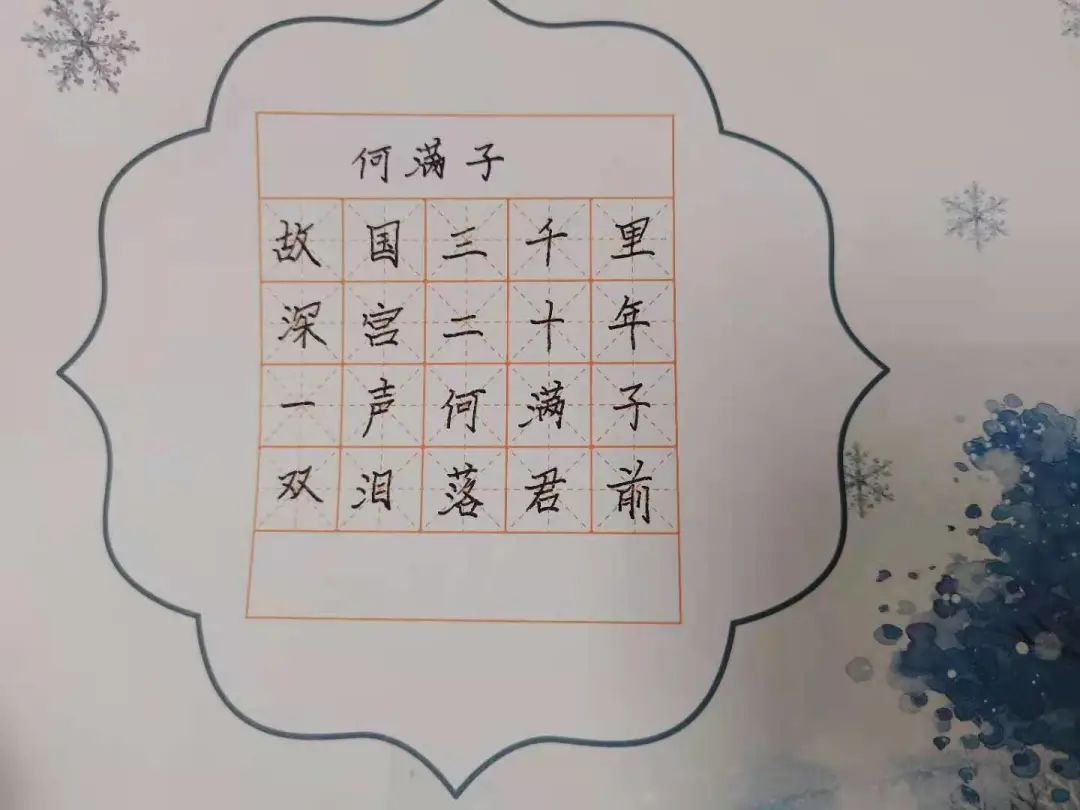 何满子
故国三千里
深宫二十年
一声何满子
双泪落君前